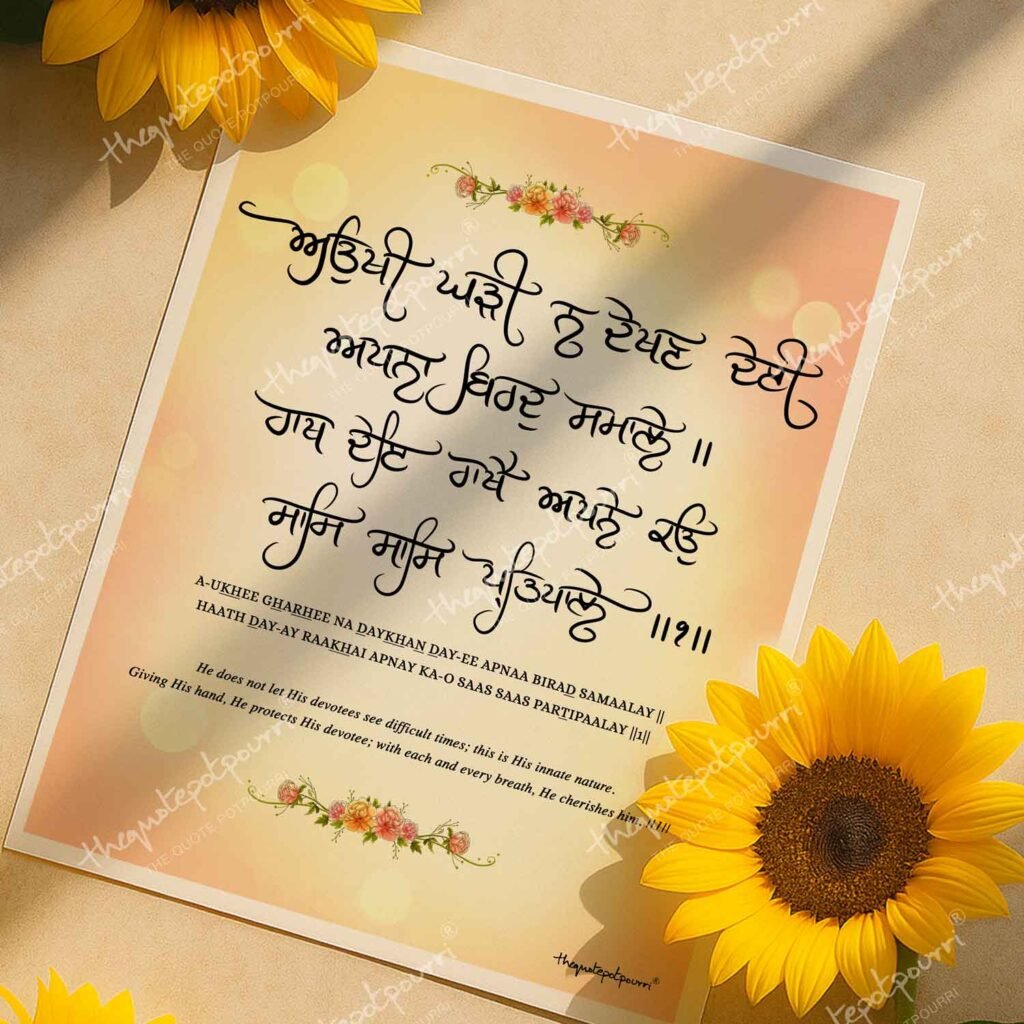 ਅਉਖੀ ਘੜੀ ਨ ਦੇਖਣ ਦੇਈ
ਅਪਨਾ ਬਿਰਦੁ ਸਮਾਲੇ ॥
ਹਾਥ ਦੇਇ ਰਾਖੈ ਅਪਨੇ ਕਉ
ਸਾਸਿ ਸਾਸਿ ਪ੍ਰਤਿਪਾਲੇ ॥੧॥
A-UKHEE GHARHEE NA DAYKHAN DAY-EE APNAA BIRAD SAMAALAY ||
HAATH DAY-AY RAAKHAI APNAY KA-O SAAS SAAS PARTIPAALAY ||1||
He does not let His devotees see difficult times; this is His innate nature.
Giving His hand, He protects His devotee; with each and every breath, He cherishes him. ||1||
thequotepotpourri®